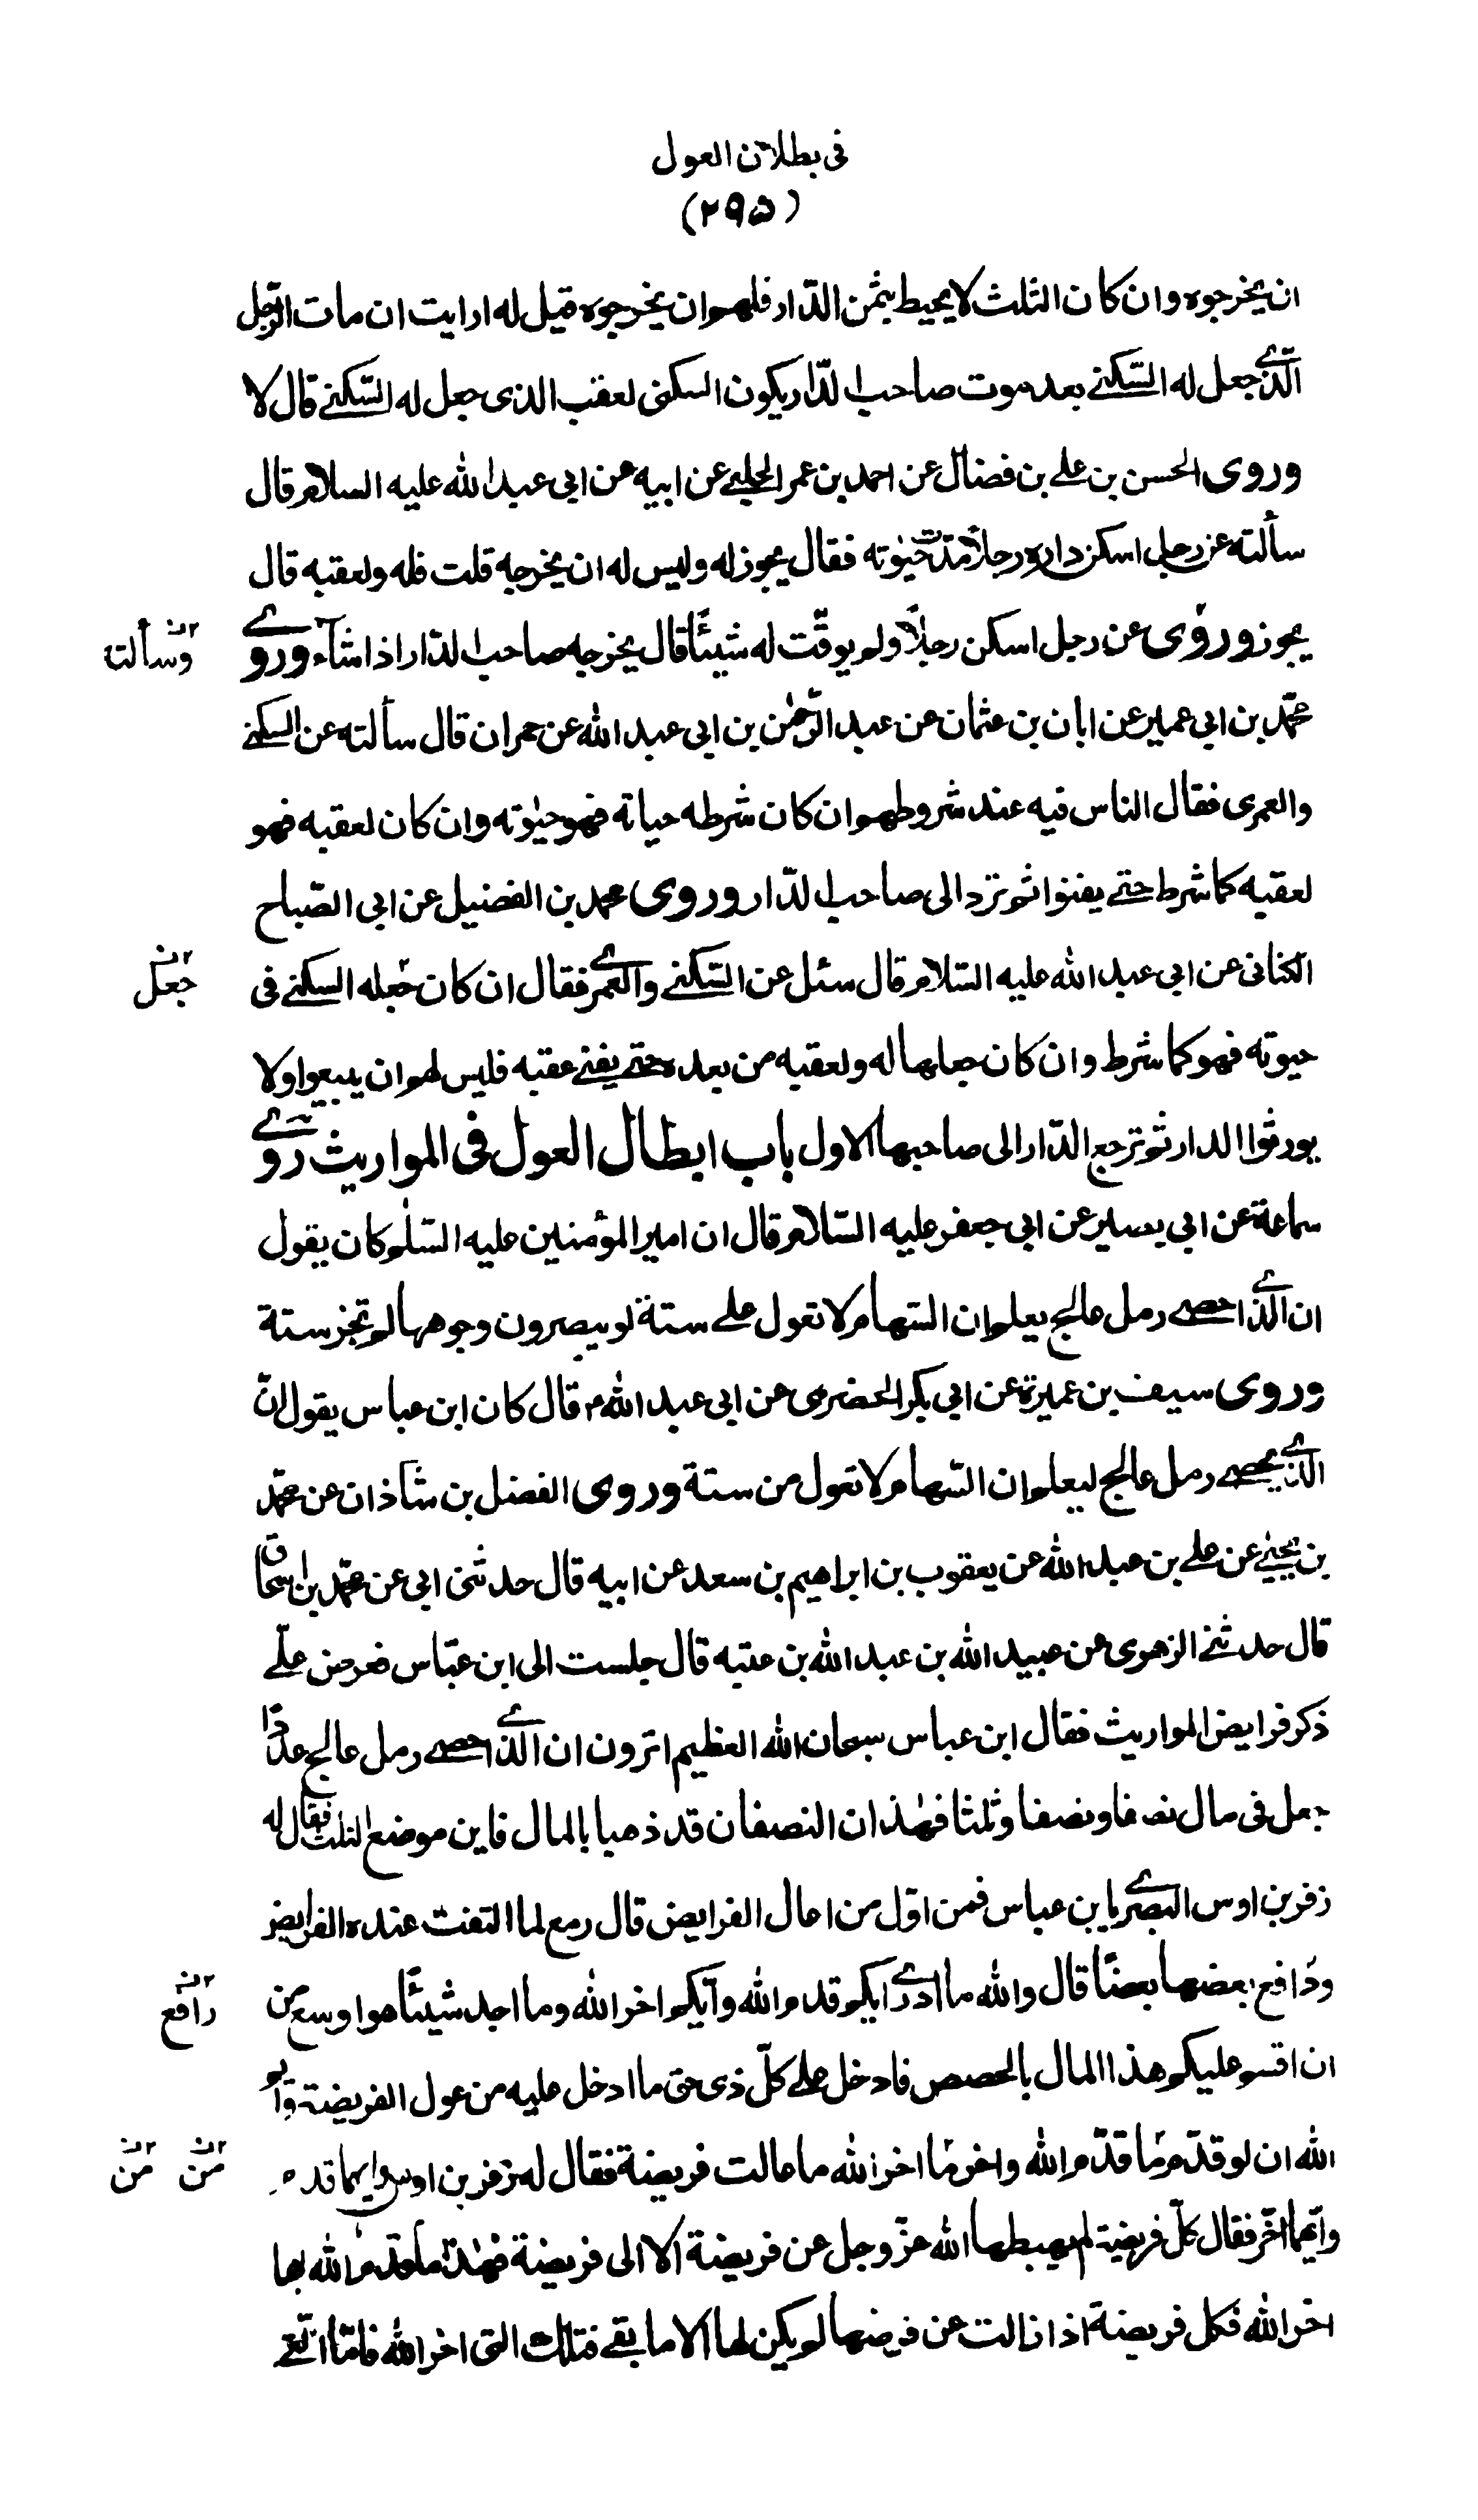 فى بطلان العول
(٢٩٥)
ان يخرجوه وان كان الثلث لا يحيط بثمن الدّار فلهم ان يخرجوه قيل له ارايت ان مات الرّجل
الّذى جعل له السّكنى بعد موت صاحب الدّار يكون السكنى لعقب الذى جعل له السّكنى قال لا
وروى الحسن بن على بن فضال عن احمد بن عمر الحلبى عن ابيه عن ابى عبد الله عليه السلام قال
سألته عن رجل اسكن داره رجلاً مدّة حيٰوته فقال يجوز له وليس له ان يخرجه قلت فله ولعقبه قال
يجوز وروى عن رجل اسكن رجلاً ولم يوقّت له شيئًا قال يخرجه صاحب الدّار اذا شآء وروى
وسألت
محمّد بن ابى عمير عن ابان بن عثمان عن عبد الرّحمٰن بن ابى عبد الله عن حمران قال سألته عن السكنى
والعمرى فقال الناس فيه عند شروطهم ان كان شرطه حياته فهو حيٰوته وان كان لعقبه فهو
لعقبه كما شرط حتى يفنوا ثم تردّ الى صاحب الدّار وروى محمد بن الفضيل عن ابى الصّباح
الكنانى عن ابى عبد الله عليه السّلام قال سئل عن السّكنى والعمرى فقال ان كان جعله السكنى فى
جعل
حيوته فهو كما شرط وان كان جعلها له ولعقبه من بعده حتى يفنى عقبه فليس لهم ان يبيعوا ولا
يورثوا الدار ثم ترجع الدّار الى صاحبها الاول باب ابطال العول فى المواريث روى
سماعة عن ابى بصير عن ابى جعفر عليه السّلام قال ان امير المؤمنين عليه السّلٰم كان يقول
ان الّذى احصى رمل عالج يعلم ان السّهام لا تعول على ستة لو يبصرون وجوهها لم تجز ستة
وروى سيف بن عميرة عن ابى بكر الحضرمى عن ابى عبد الله ؑ قال كان ابن عباس يقول انّ
الّذى يحصى رمل عالج ليعلم ان السّهام لا تعول من ستة وروى الفضل بن شاذان عن محمّد
بن يحيٰى عن على بن عبد الله عن يعقوب بن ابراهيم بن سعد عن ابيه قال حدثنى ابى عن محمّد بن اسحاق
قال حدثنى الزهرى عن عبيد الله بن عبد الله بن عتبه قال جلست الى ابن عبّاس فعرض علىّ
ذكر فرايض المواريث فقال ابن عباس سبحان الله العظيم اترون ان الّذى احصى رمل عالج عددًا
جعل فى مال نصفا ونصفا وثلثا فهٰذان النصفان قد ذهبا بالمال فاين موضع الثلث فقال له
زفر بن اوس البصرى يا بن عباس فمن اوّل من اعال الفرايض قال رمع لما التفت عنده الفرايض
ودافع بعضها بعضًا قال والله ما ادرى ايكم قدم الله وايّكم اخر الله وما اجد شيئًا هو اوسع من
رافع
ان اقسم عليكم هذا المال بالحصص فادخل على كلّ ذى حق ما ادخل عليه من عول الفريضة وايم
الله ان لو قدّم ما قدّم الله واخر ما اخر الله ما عالت فريضة فقال له زفر بن اوس وايهما قدم
من من
وايّهما اخّر فقال كلّ فريضة لم يهبطها الله عزّ وجل عن فريضة الا الى فريضة فهٰذا ما قدم الله
اخر الله فكل فريضة اذا زالت عن فرضها لم يكن لها الا ما بقى فتلك التى اخر الله فامّا الّتى